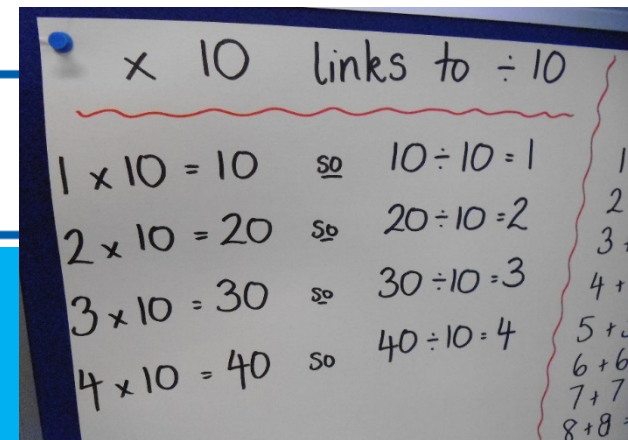 × 10 links to ÷ 10
1 × 10 = 10 so 10 ÷ 10 = 1
2 × 10 = 20 so 20 ÷ 10 = 2
3 × 10 = 30 so 30 ÷ 10 = 3
4 × 10 = 40 so 40 ÷ 10 = 4
1
2
3 +
4 +
5 +
6 + 6
7 + 7
8 + 8 =